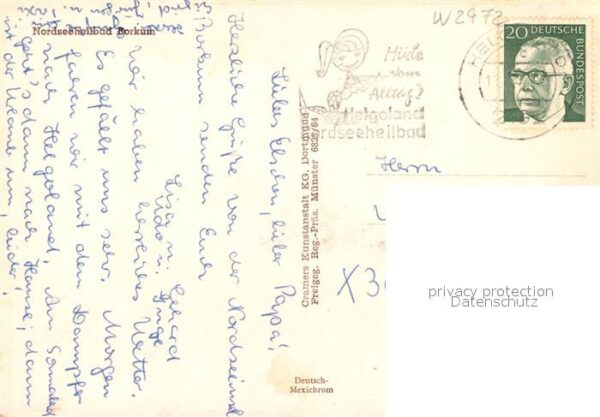 Nordseeheilbad Borkum
W2972
20 DEUTSCHE
BUNDESPOST
HEL
Müde
vom
Alltag?
Helgoland
Nordseeheilbad
Herrn
X3
privacy protection
Datenschutz
Cramers Kunstanstalt KG, Dortmund
Freigeg. Reg.-Präs. Münster 6828/64
Deutsch-
Mexichrom
Liebes Elschen, lieber Papa!
Herzliche Grüße von der Nordseeinsel
Borkum senden Euch
Gerhard
Wir haben herrliches Wetter.
Es gefällt uns sehr. Morgen
fahren wir mit dem Dampfer
nach Helgoland. Am Sonnabend
geht's dann nach Hause, dann
ist der Urlaub um, leider!